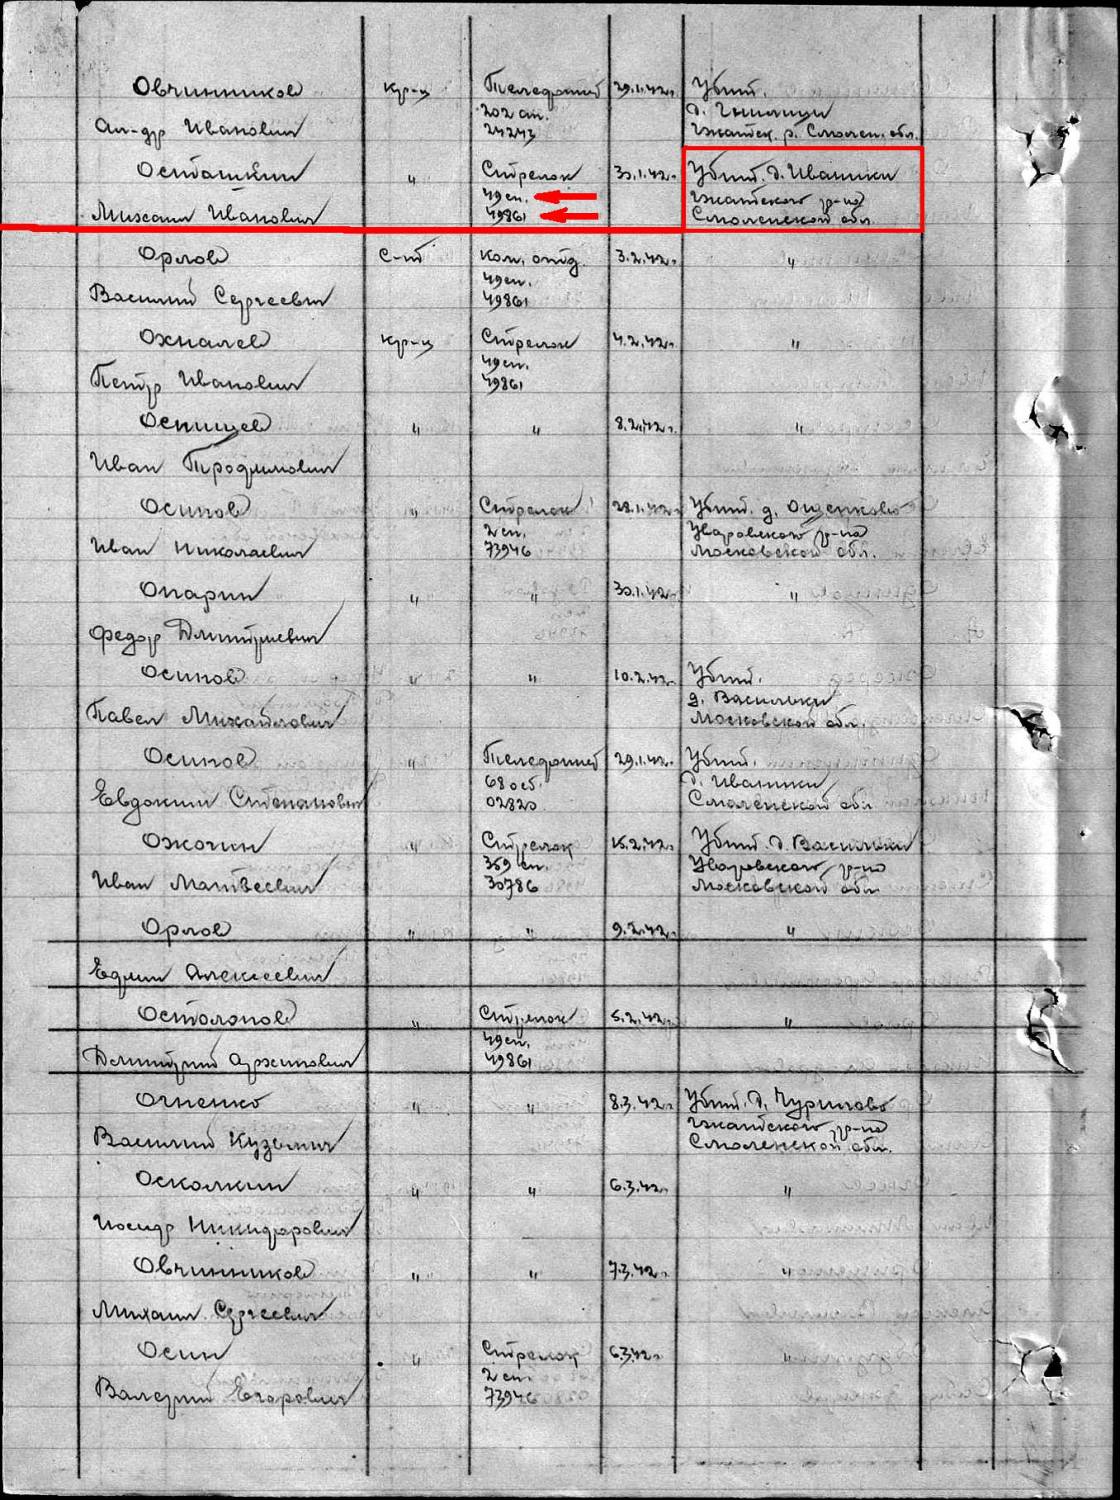 Овчинников кр-ц Телефонист 29.1.42г. Убит.
202 ап. д. Гнилищи
Ал-др Иванович 24243 Гжатск. р. Смолен. обл.
Осташкин " Стрелок 30.1.42г. Убит. д. Ивашки
49 сп. Гжатского р-на
Михаил Иванович 49861 Смоленской обл.
Орлов С-т Ком. отд. 3.2.42г. "
49 сп.
Василий Сергеевич 49861
Охналев кр-ц Стрелок 4.2.42г. "
49 сп.
Петр Иванович 49861
Оснищев " " 8.2.42г. "
Иван Трофимович
Осипов " Стрелок 28.1.42г. Убит. д. Ощепково
2 сп. Уваровского р-на
Иван Николаевич 73946 Московской обл.
Опарин " " 30.1.42г. "
Федор Дмитриевич
Осипов " " 10.2.42г. Убит.
д. Васильки
Павел Михайлович Московской обл.
Осипов " Телефонист 29.1.42г. Убит.
68 осб. д. Ивашки
Евдоким Степанович 02820 Смоленской обл
Ожогин " Стрелок 15.2.42г. Убит. д. Васильки
359 сп. Уваровского р-на
Иван Матвеевич 30786 Московской обл
Орлов " " 9.2.42г. "
Ефим Алексеевич
Остолопов " Стрелок 5.2.42г. "
49 сп.
Дмитрий 49861
Огненко " " 8.3.42г. Убит. д. Чурилово
Гжатского р-на
Василий Кузьмич Смоленской обл.
Осколкин " " 6.3.42г. "
Иосиф Никифорович
Овчинников " " 7.3.42г. "
Михаил Сергеевич
Осин " Стрелок 6.3.42г. "
2 сп.
Валерий Егорович 73946